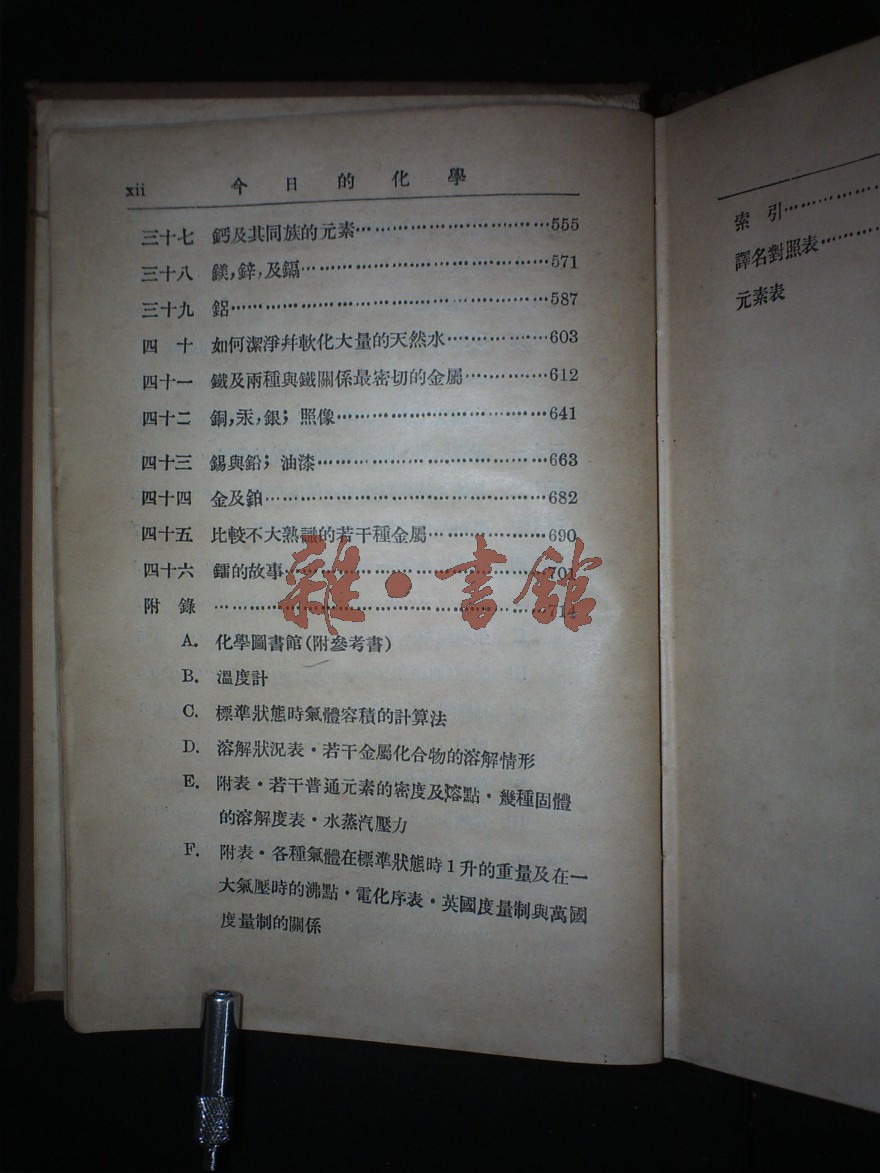 xii 今日的化學
三十七 鈣及其同族的元素……………………555
三十八 鎂,鋅,及鎘……………………571
三十九 鋁……………………587
四十 如何潔淨幷軟化大量的天然水……………603
四十一 鐵及兩種與鐵關係最密切的金屬……………612
四十二 銅,汞,銀;照像……………………641
四十三 錫與鉛;油漆……………………663
四十四 金及鉑……………………682
四十五 比較不大熟識的若干種金屬……………690
四十六 鐳的故事……………………701
附錄 ……………………714
A. 化學圖書館(附參考書)
B. 溫度計
C. 標準狀態時氣體容積的計算法
D. 溶解狀況表·若干金屬化合物的溶解情形
E. 附表·若干普通元素的密度及熔點·幾種固體
的溶解度表·水蒸汽壓力
F. 附表·各種氣體在標準狀態時1升的重量及在一
大氣壓時的沸點·電化序表·英國度量制與萬國
度量制的關係
索引……………
譯名對照表…………
元素表
雜·書館